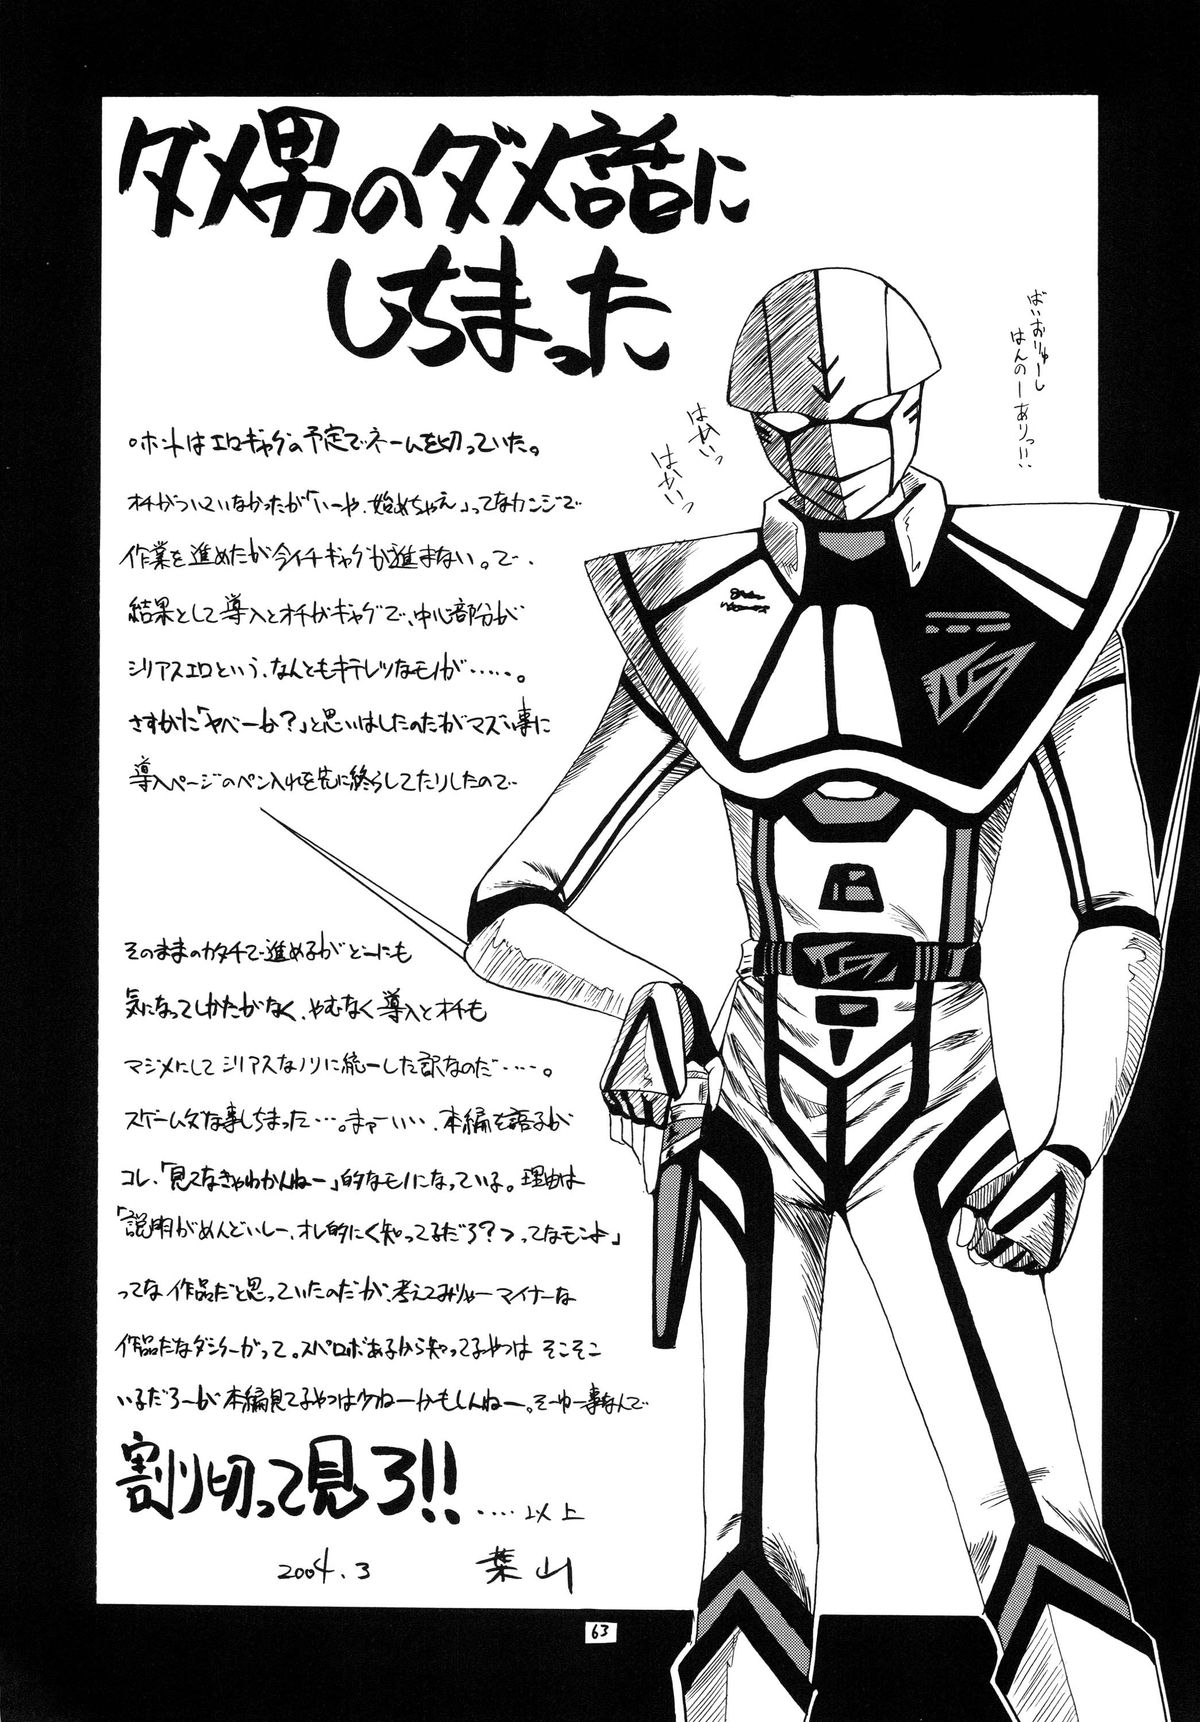 ダメ男のダメ話に
しちまった
ばいおりゅーし
はんのーありっ!!
はぁいっ
はぁいっ
。ホントはエロギャグの予定でネームを切っていた。
オチがついていなかったが「いーや、始めちゃえ」ってなカンジで
作業を進めたが今イチギャグが進まない。で、
結果として導入とオチがギャグで、中心部分が
シリアスエロという、なんともキテレツなモノが……。
さすがに「ヤベーか?」と思いはしたのだがマズい事に
導入ページのペン入れを先に終らしてたりしたので
そのままのカタチで進めるがどーにも
気になってしかたがなく、やむなく導入とオチも
マジメにして シリアスなノリに統一した訳なのだ……。
スゲームダな事しちまった…。まァーいい、本編を語るが
コレ、「見てなきゃわかんねー」的なモノになっている。理由は
「説明がめんどいしー、オレ的にく知ってるだろ?>ってなモンよ」
ってな作品だと思っていたのだが、考えてみりゃーマイナーな
作品だなダンクーガって。スパロボあるから知ってるやつは そこそこ
いるだろーが本編見てるやつは少ねーかもしんねー。そーゆー事なんで
割り切って見ろ!! ……以上
2004.3 葉山
63